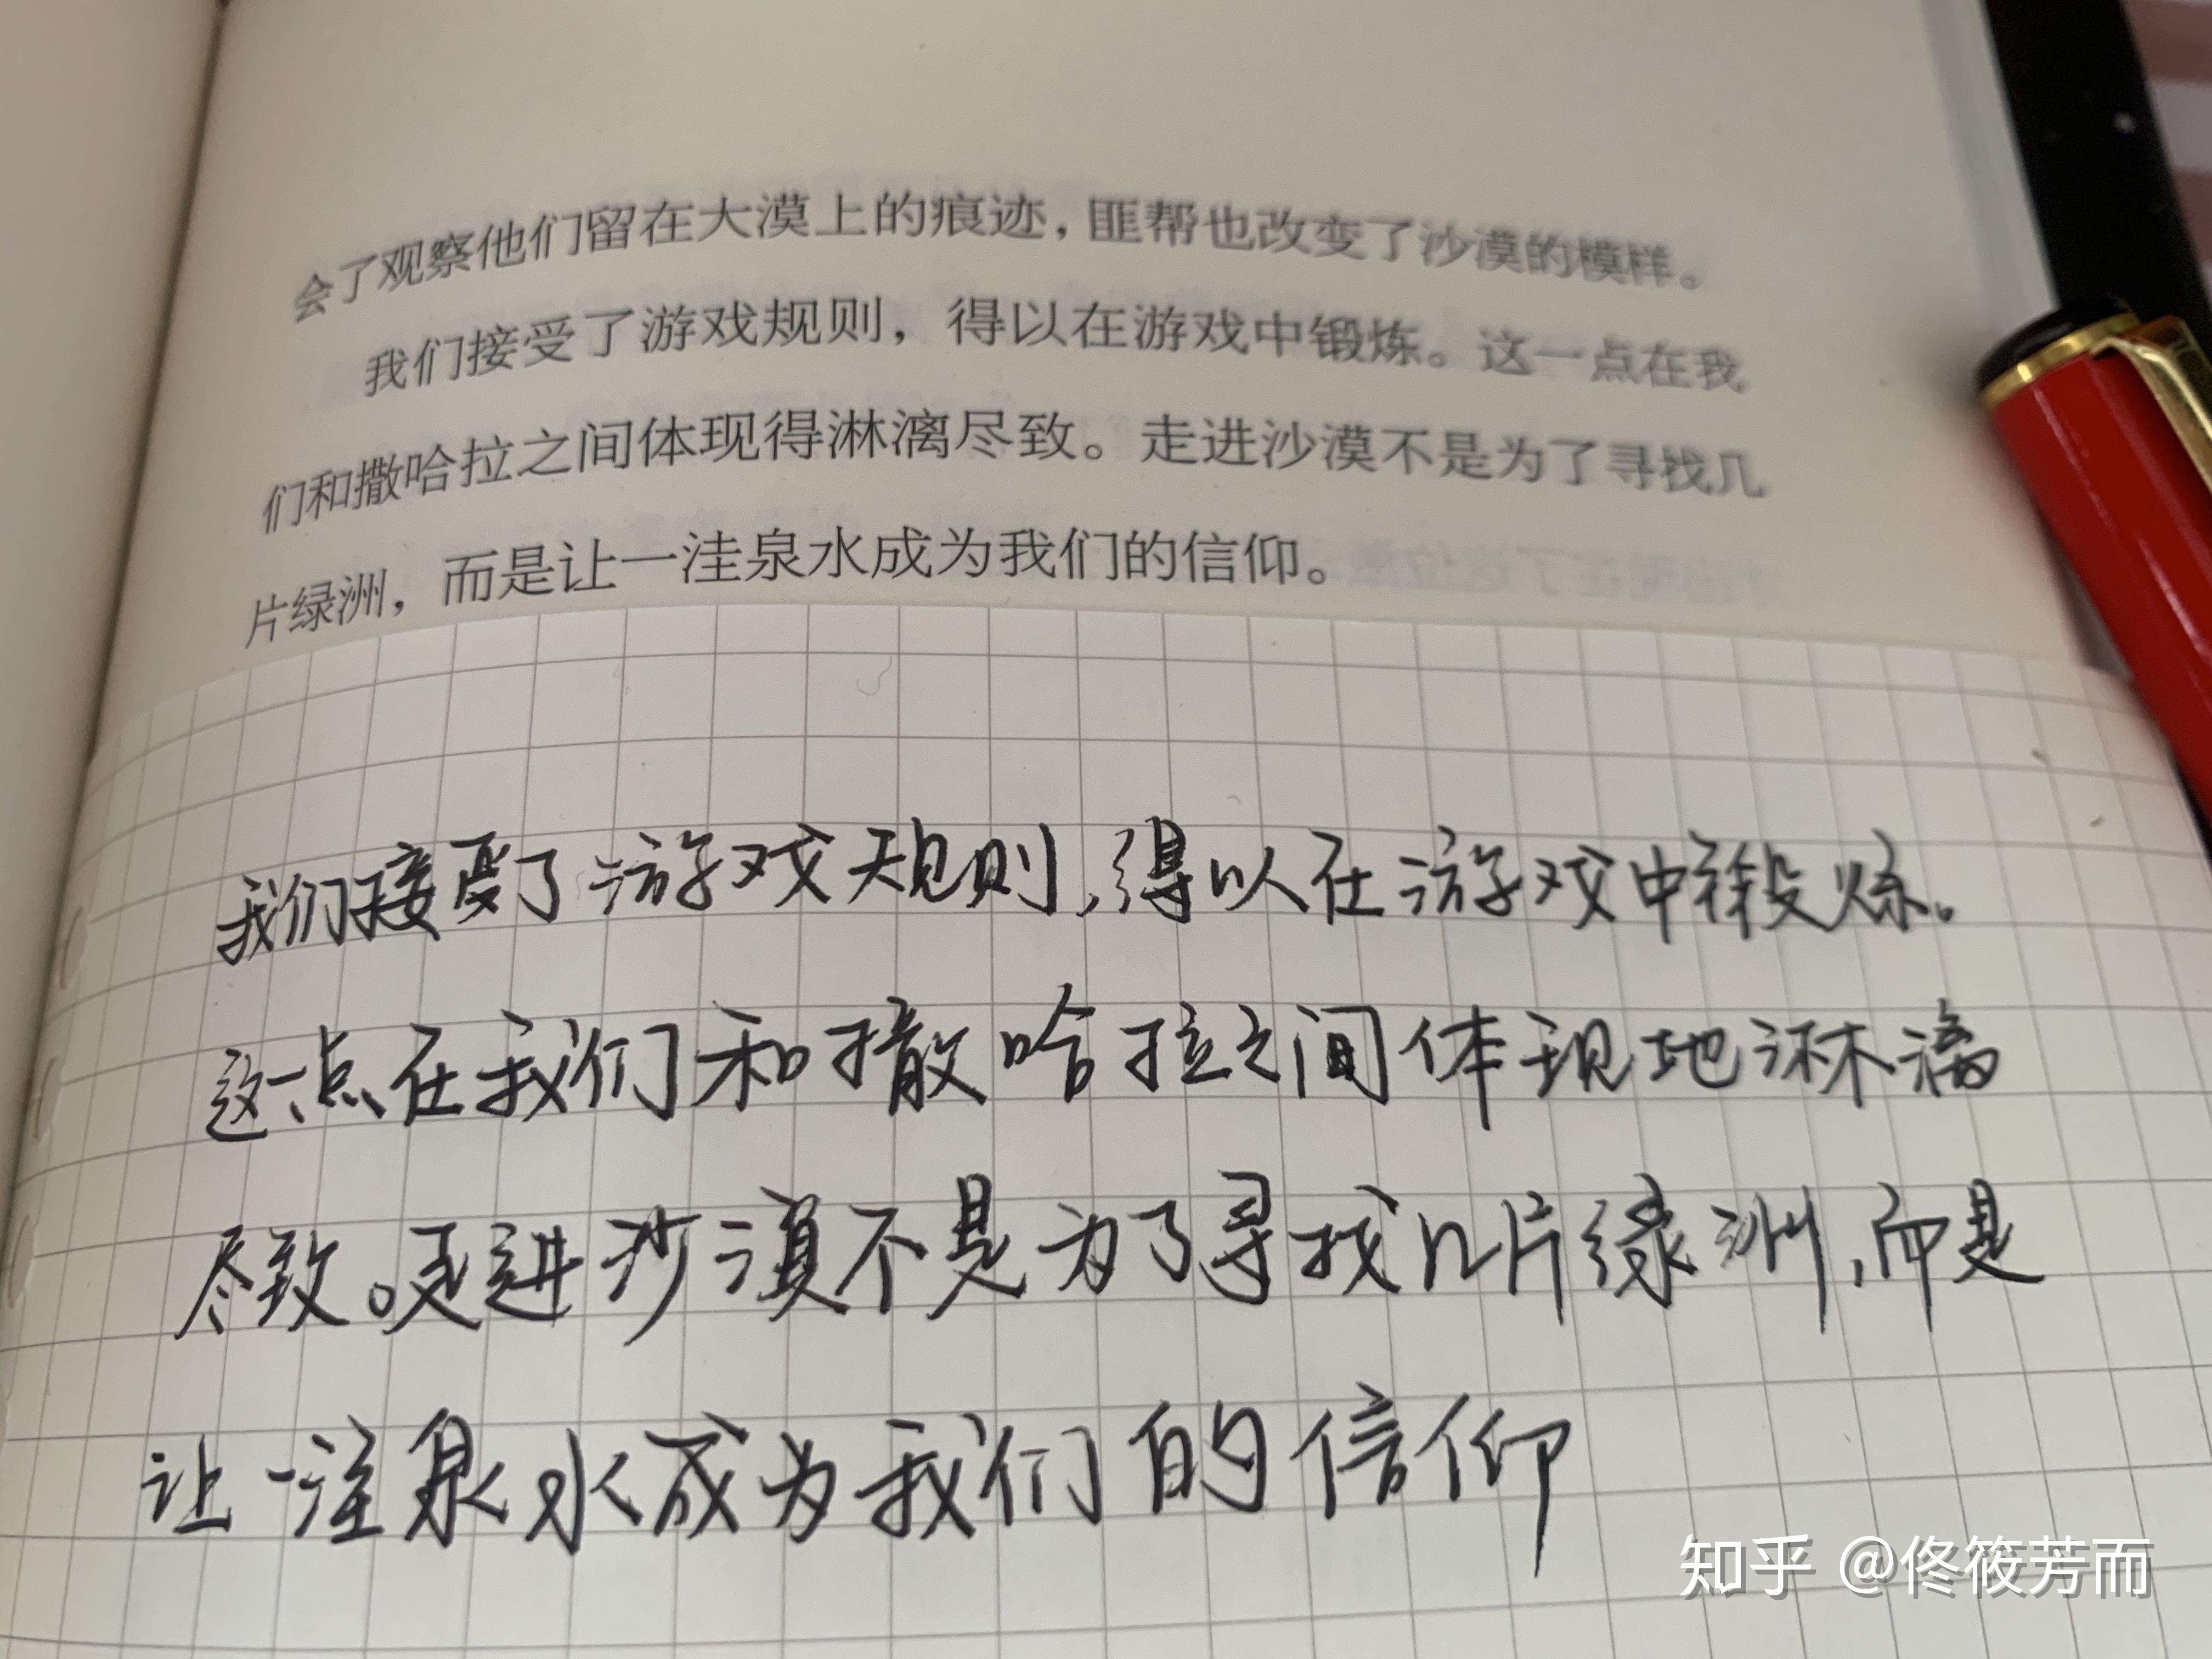 会了观察他们留在大漠上的痕迹，匪帮也改变了沙漠的模样。
我们接受了游戏规则，得以在游戏中锻炼。这一点在我
们和撒哈拉之间体现得淋漓尽致。走进沙漠不是为了寻找几
片绿洲，而是让一洼泉水成为我们的信仰。
我们接受了游戏规则，得以在游戏中锻炼。
这一点在我们和撒哈拉之间体现地淋漓
尽致。走进沙漠不是为了寻找几片绿洲，而是
让一洼泉水成为我们的信仰
知乎 @佟筱芳而